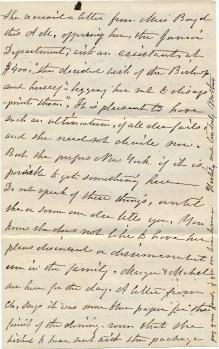 She received a letter from Miss Boyd
this A.M., offering her the Junior
Department, with an assistant, at
$400; the decided wish of the Bishop
and herself - begging her not to disap-
point them. It is pleasant to have
such an ultimatum, if all else fails
and she need not decide now.
But she prefers New York if it is
possible to get something here
Do not speak of these things, until
she or some one else tells you. You
know she does not like to have her
plans discussed or
even in the family. Margie & Mabel
are here for the day. A letter from
says it was the paper for the
finish of the dining room that she
wished to have sent with the package